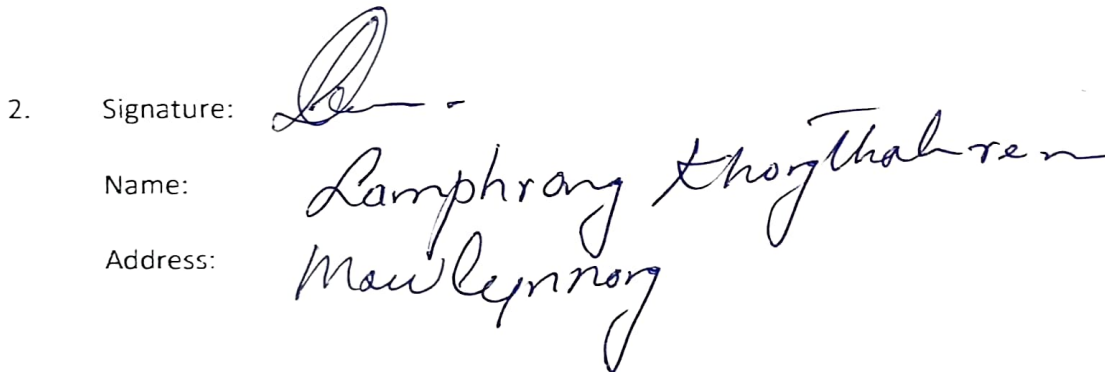 2. Signature:
Name: Lamphrang Khongthahrem
Address: Mawlynnong